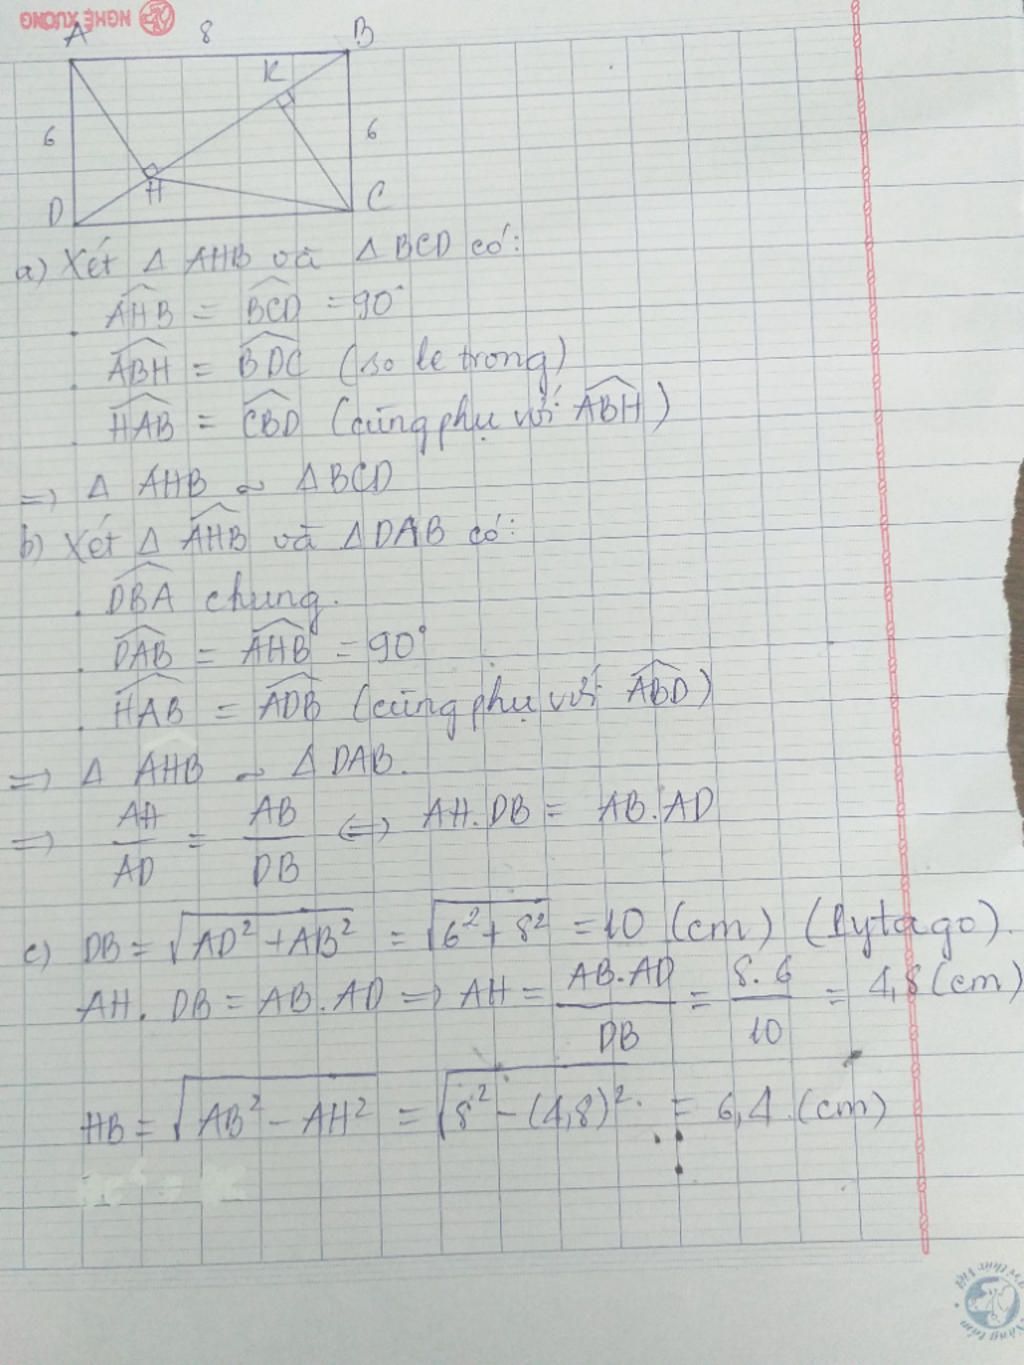 NGHỆ XƯƠNG
A 8 B
K
6 6
H
D C
a) Xét Δ AHB và Δ BCD có:
. AHB = BCD = 90°
. ABH = BDC (so le trong)
. HAB = CBD (cùng phụ với ABH)
=> Δ AHB ~ Δ BCD
b) Xét Δ AHB và Δ DAB có:
. DBA chung.
. DAB = AHB = 90°
. HAB = ADB (cùng phụ với ABD)
=> Δ AHB ~ Δ DAB.
=> AH/AD = AB/DB <=> AH.DB = AB.AD
c) DB = √(AD² + AB²) = √(6² + 8²) = 10 (cm) (Pytago).
AH. DB = AB. AD => AH = AB.AD/DB = 8.6/10 = 4,8 (cm)
HB = √(AB² - AH²) = √(8² - (4,8)²) = 6,4 (cm)